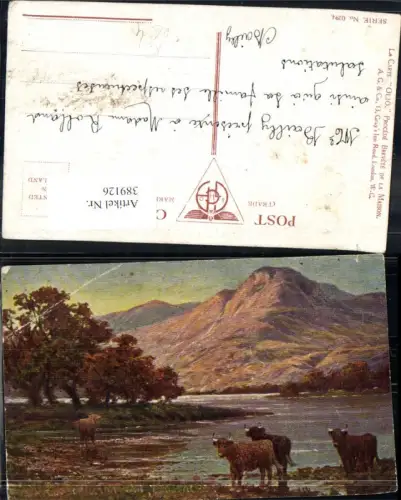 La Carte "OILIO," Procédé Breveté de la Maison,
A. G. & Co., 13, Gray's Inn Road, London, W.C.
SERIE No. 0294
POST C
(TRADE MARK)
Artikel Nr.
389126
Bailly présente à Madame Rolland
ainsi qu'à sa famille ses respectueuses
salutations
Bailly